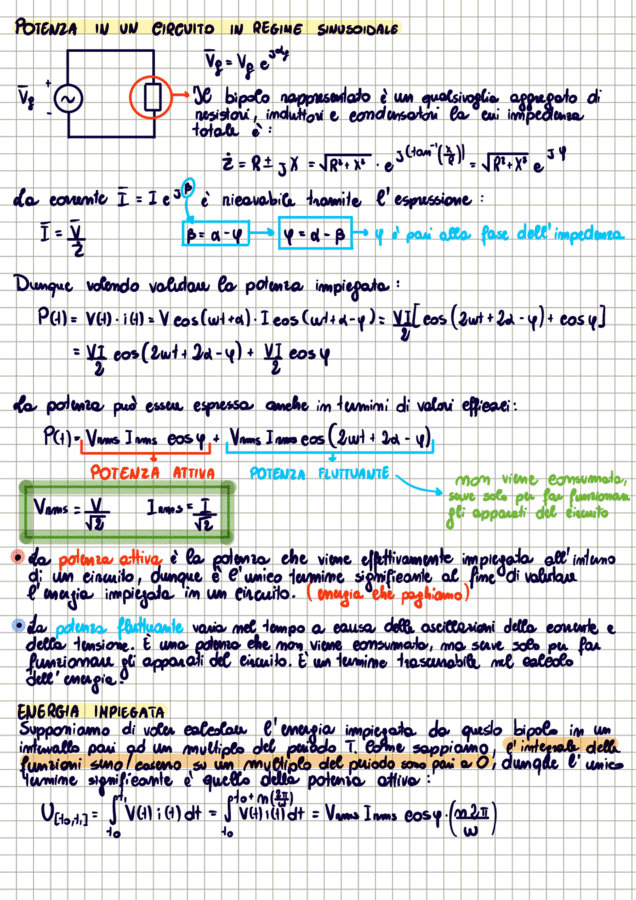 POTENZA IN UN CIRCUITO IN REGIME SINUSOIDALE
V̄g = Vg e^jαg
V̄g + ~ -
Il bipolo rappresentato è un qualsivoglia aggregato di
resistori, induttori e condensatori la cui impedenza
totale è:
ż = R ± jX = √R²+X² · e^j(tan⁻¹(X/R)) = √R²+X² e^jφ
La corrente Ī = I e^jβ è ricavabile tramite l'espressione:
Ī = V̄/ż β = α - φ → φ = α - β → φ è pari alla fase dell'impedenza
Dunque volendo valutare la potenza impiegata:
P(t) = V(t) · i(t) = V cos(ωt+α) · I cos(ωt+α-φ) = VI/2 [cos(2ωt+2α-φ) + cosφ]
= VI/2 cos(2ωt+2α-φ) + VI/2 cosφ
La potenza può essere espressa anche in termini di valori efficaci:
P(t) = Vrms Irms cosφ + Vrms Irms cos(2ωt+2α-φ)
POTENZA ATTIVA POTENZA FLUTTUANTE
non viene consumata,
serve solo per far funzionare
gli apparati del circuito
Vrms = V/√2 Irms = I/√2
• La potenza attiva è la potenza che viene effettivamente impiegata all'interno
di un circuito, dunque è l'unico termine significante al fine di valutare
l'energia impiegata in un circuito. (energia che paghiamo)
• La potenza fluttuante varia nel tempo a causa delle oscillazioni della corrente e
della tensione. È una potenza che non viene consumata, ma serve solo per far
funzionare gli apparati del circuito. È un termine trascurabile nel calcolo
dell'energia.
ENERGIA IMPIEGATA
Supponiamo di voler calcolare l'energia impiegata da questo bipolo in un
intervallo pari ad un multiplo del periodo T. Come sappiamo, l'integrale delle
funzioni seno/coseno su un multiplo del periodo sono pari a 0, dunque l'unico
termine significante è quello della potenza attiva:
U[t₀,t₁] = ∫t₀^t₁ V(t) i(t) dt = ∫t₀^t₀+n(2π/ω) V(t) i(t) dt = Vrms Irms cosφ · (n2π/ω)